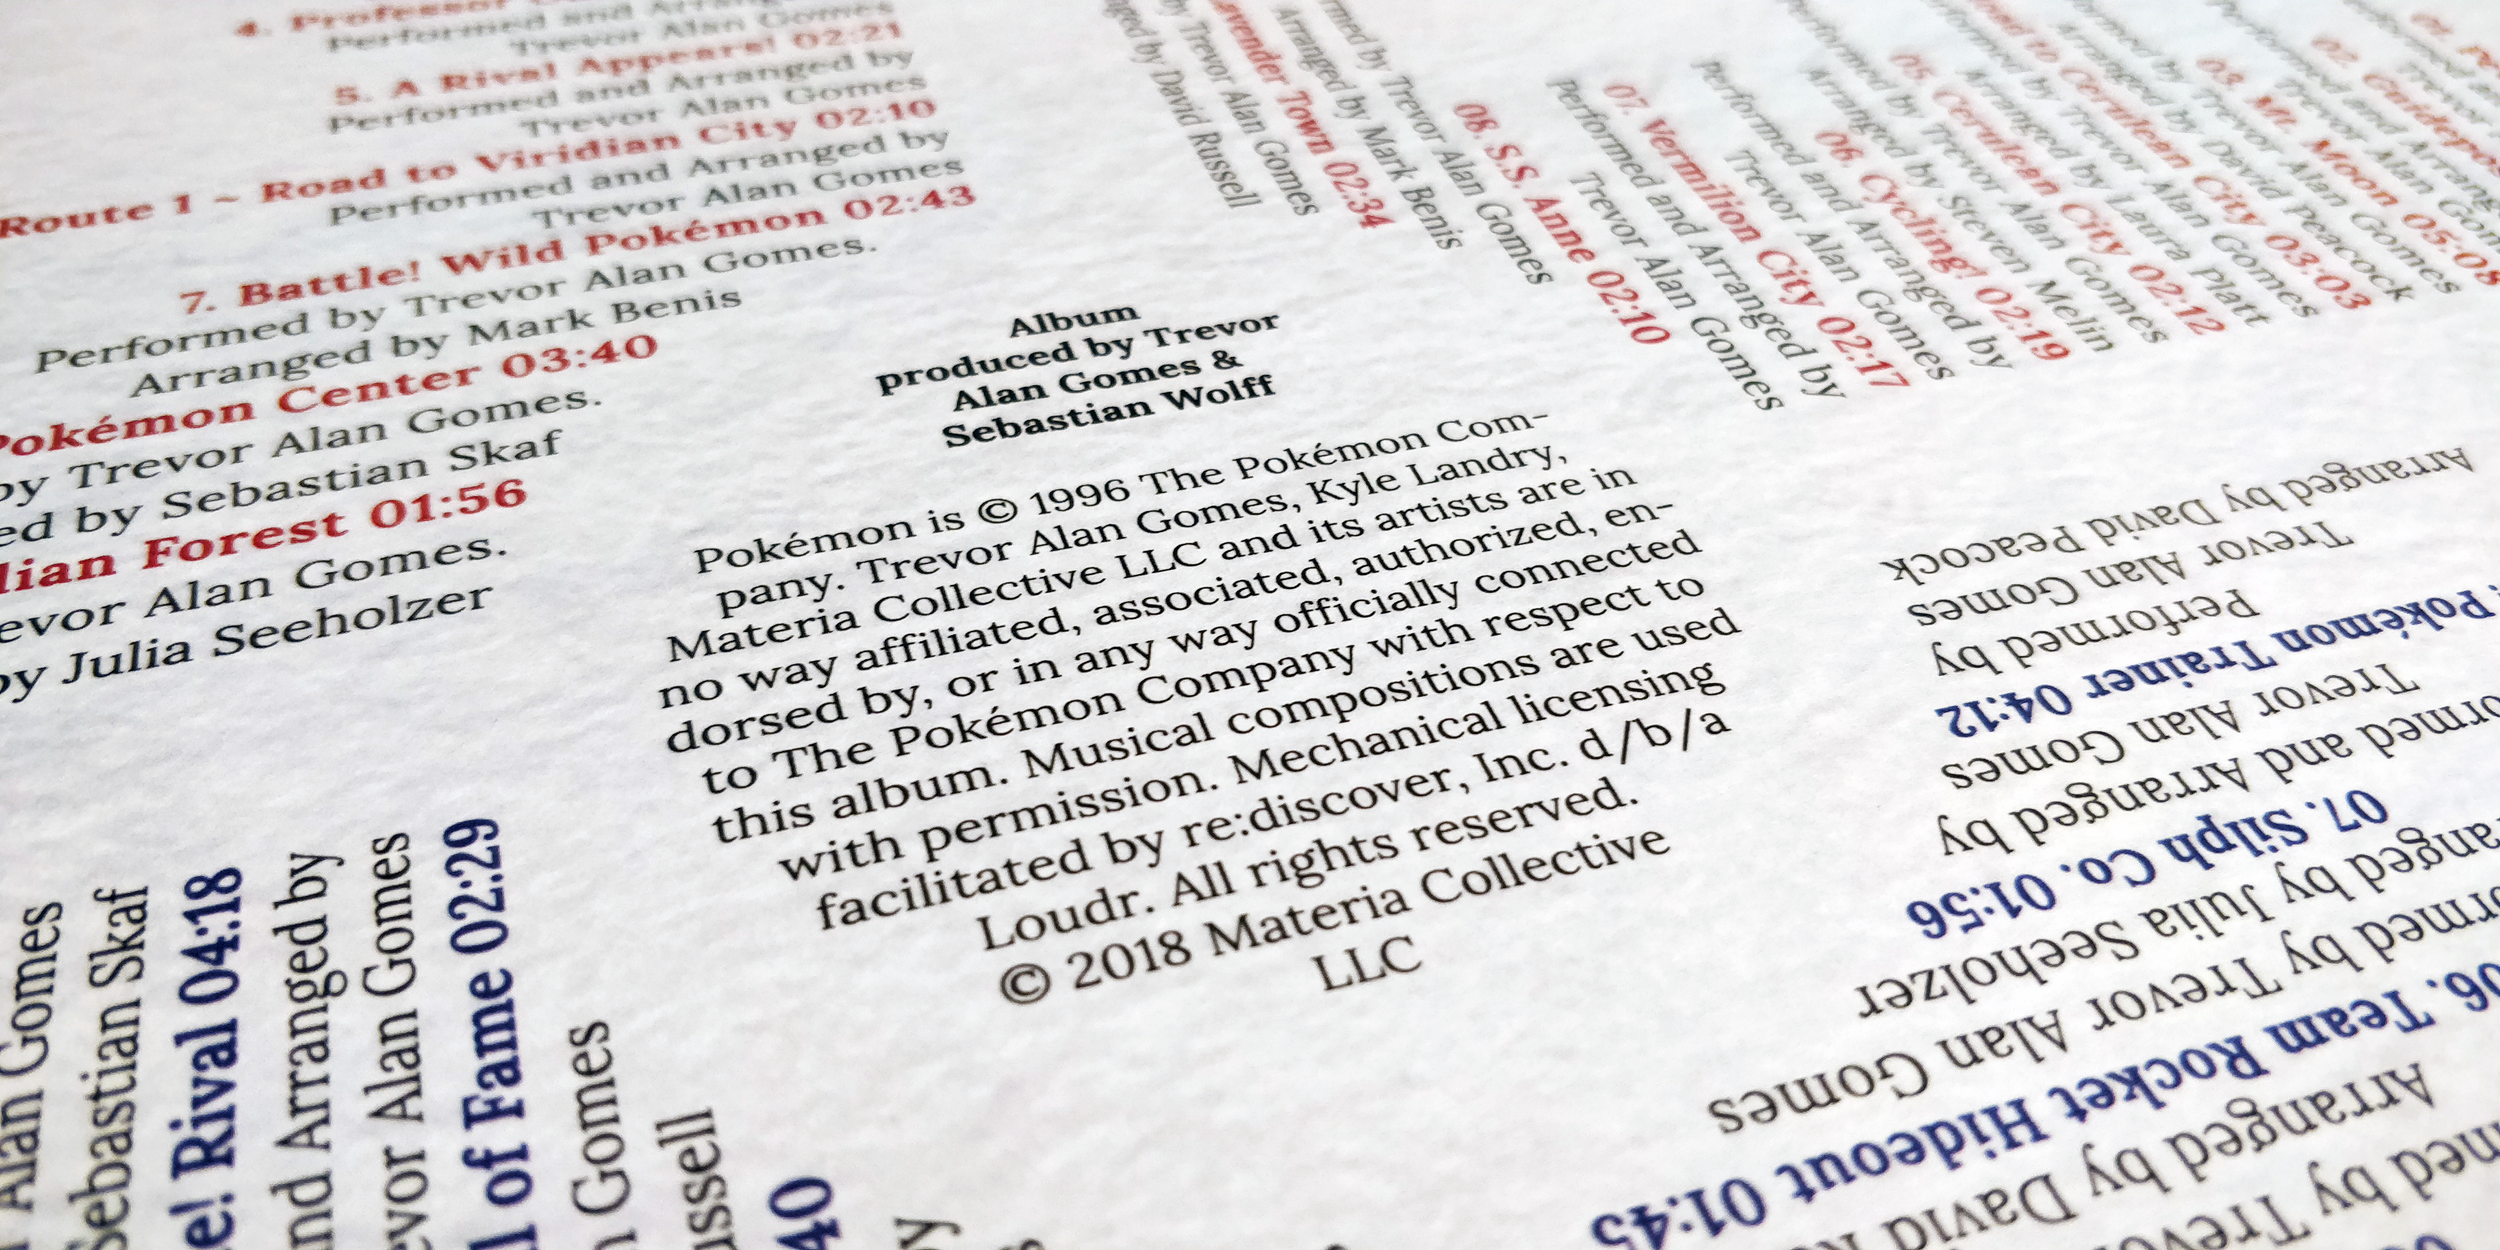 4. Professor
Performed and
Trevor Alan Gomes
5. A Rival Appears! 02:21
Performed and Arranged by
Trevor Alan Gomes
Route 1 ~ Road to Viridian City 02:10
Performed and Arranged by
Trevor Alan Gomes
7. Battle! Wild Pokémon 02:43
Performed by Trevor Alan Gomes.
Arranged by Mark Benis
Pokémon Center 03:40
by Trevor Alan Gomes.
by Sebastian Skaf
Forest 01:56
Alan Gomes.
by Julia Seeholzer
by David Russell
by Trevor Alan Gomes
Town 02:34
Arranged by Mark Benis
by Trevor Alan Gomes
08. S.S. Anne 02:10
Trevor Alan Gomes
Performed and Arranged by
07. Vermilion City 02:17
Trevor Alan Gomes
Performed and Arranged by
06. Cycling! 02:19
Arranged by Steven Melin
by Trevor Alan Gomes
05. Cerulean City 02:12
Arranged by Laura Platt
by Trevor Alan Gomes
to Cerulean City 03:03
Arranged by David Peacock
by Trevor Alan Gomes
03. Mt. Moon 05:08
Trevor Alan
02.
Album
produced by Trevor
Alan Gomes &
Sebastian Wolff
Pokémon is © 1996 The Pokémon Com-
pany. Trevor Alan Gomes, Kyle Landry,
Materia Collective LLC and its artists are in
no way affiliated, associated, authorized, en-
dorsed by, or in any way officially connected
to The Pokémon Company with respect to
this album. Musical compositions are used
with permission. Mechanical licensing
facilitated by re:discover, Inc. d/b/a
Loudr. All rights reserved.
© 2018 Materia Collective
LLC
Alan Gomes
Sebastian Skaf
Rival 04:18
and Arranged by
Alan Gomes
of Fame 02:29
Gomes
40
by
Trevor
by David
Arranged by
06. Team Rocket Hideout 01:45
by Trevor Alan Gomes
by Julia Seeholzer
07. Silph Co. 01:56
and Arranged by
Trevor Alan Gomes
Pokémon Trainer 04:12
Performed by
Trevor Alan Gomes
Arranged by David Peacock